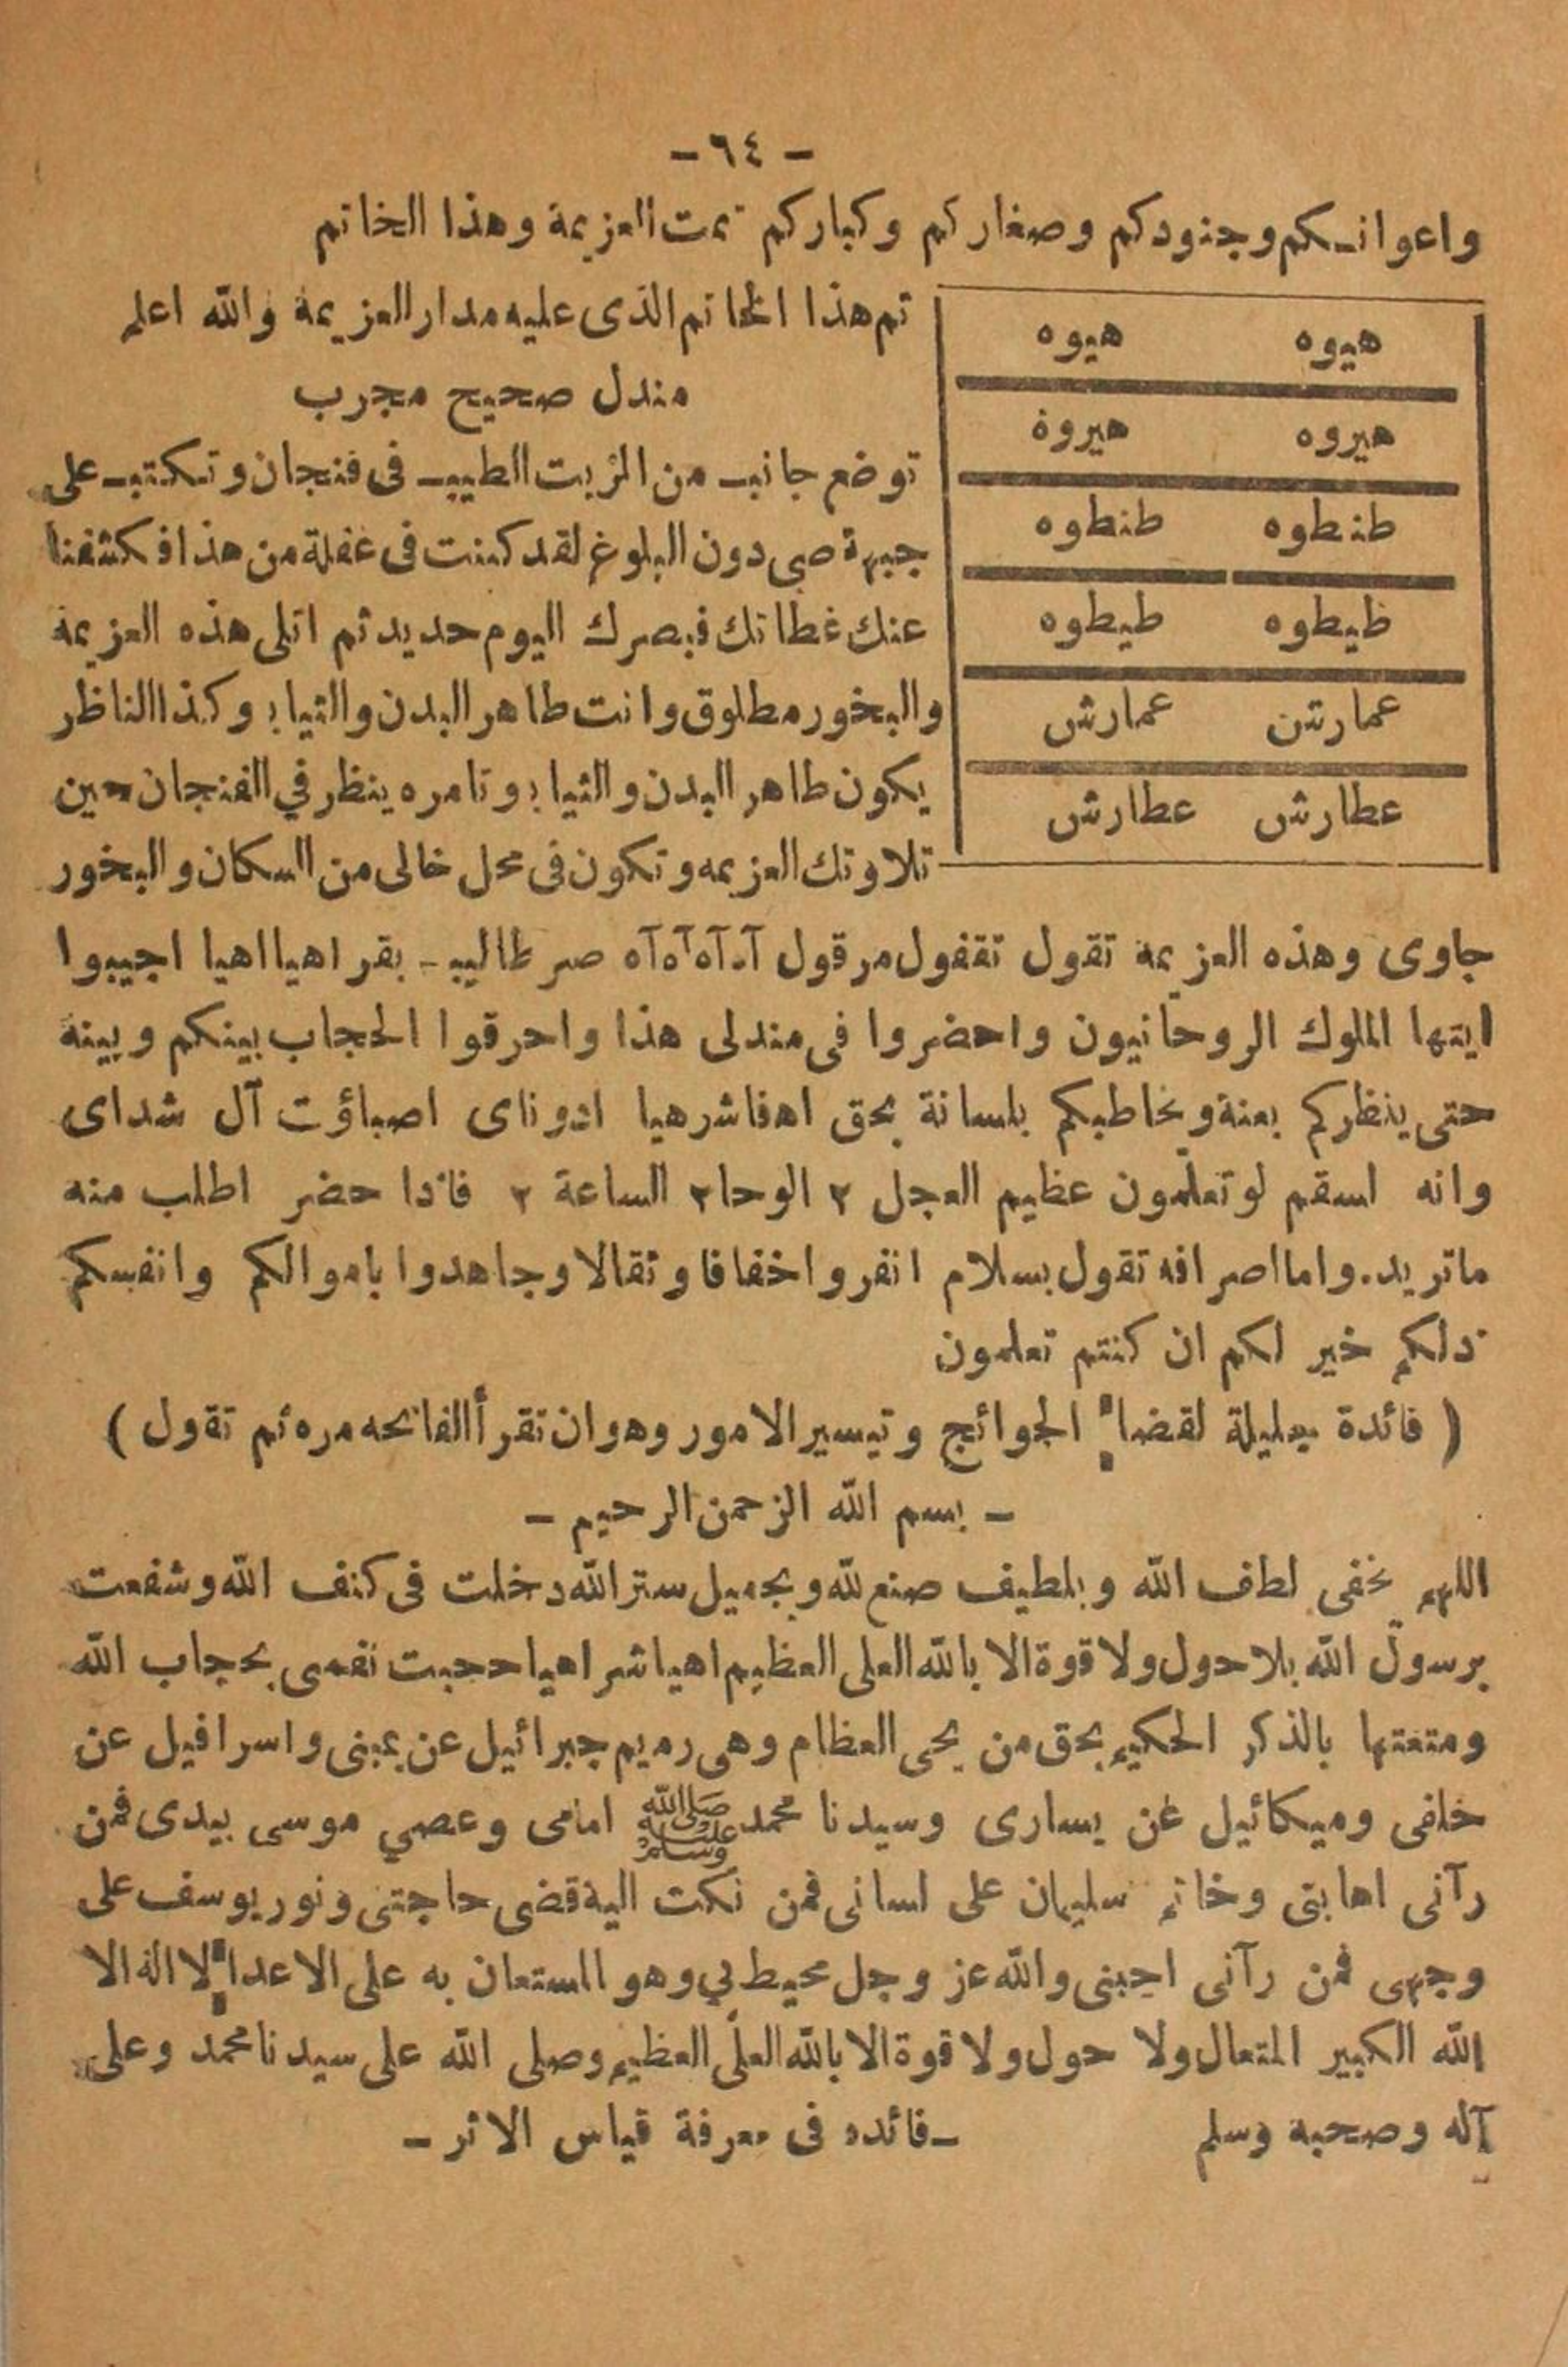 - ٦٤ -
واعوانكم وجنودكم وصغاركم وكباركم تمت العزيمة وهذا الخاتم
هيوه هيوه
هيروه هيروة
طنطوه طنطوه
ظيطوه طيطوه
عمارتن عمارش
عطارش عطارش
تم هذا الخاتم الذى عليه مدار العزيمة والله اعلم
مندل صحيح مجرب
توضع جانب من الزيت الطيب فى فنجان وتكتب على
جبهة صبى دون البلوغ لقد كنت فى غفلة من هذا فكشفنا
عنك غطائك فبصرك اليوم حديد ثم اتلى هذه العزيمة
والبخور مطلوق وانت طاهر البدن والثياب وكذا الناظر
يكون طاهر البدن والثياب وتامره ينظر في الفنجان حين
تلاوتك العزيمه وتكون فى محل خالى من السكان والبخور
جاوى وهذه العزيمة تقول تقفول مرقول آه آه آه آه صر طاليب بقر اهيا اهيا اجيبوا
ايتها الملوك الروحانيون واحضروا فى مندلى هذا واحرقوا الحجاب بينكم وبينة
حتى ينظركم بعنة ويخاطبكم بلسانة بحق اهفاشرهيا ادوناى اصباؤت آل شداى
وانه اسقم لو تعلمون عظيم العجل ٢ الوحا ٢ الساعة ٢ فاذا حضر اطلب منه
ماتريد. واما اصرافه تقول بسلام انفروا خفافا وثقالا وجاهدوا باموالكم وانفسكم
ذلكم خير لكم ان كنتم تعلمون
( فائدة جليلة لقضاء الجوائج وتيسير الامور وهو ان تقرأ الفاتحه مره ثم تقول )
- بسم الله الرحمن الرحيم -
اللهم بخفى لطاف الله وبلطيف صنع لله وبجميل ستر الله دخلت فى كنف الله وشفعت
برسول الله بلا حول ولا قوة الا بالله العلى العظيم اهياشر اهيا حجبت نفسى بحجاب الله
ومتعتها بالذكر الحكيم بحق من يحى العظام وهى رميم جبرائيل عن يمينى واسرافيل عن
خلفى وميكائيل عن يسارى وسيدنا محمد ﷺ امامى وعصي موسى بيدى فمن
رآنى اهابتى وخاتم سليمان على لسانى فمن نكت الية قضى حاجتى ونور يوسف على
وجهى فمن رآنى احبنى والله عز وجل محيط بي وهو المستعان به على الاعداء لا اله الا
الله الكبير المتعال ولا حول ولا قوة الا بالله العلى العظيم وصلى الله على سيدنا محمد وعلى
آله وصحبة وسلم - فائده فى معرفة قياس الاثر -